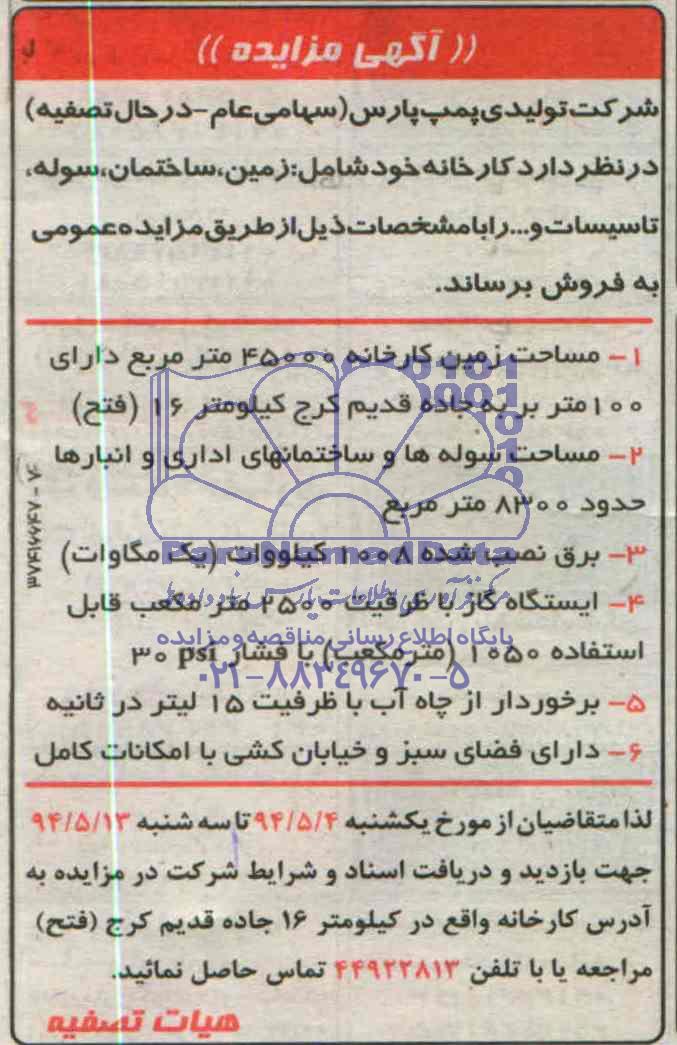 (( آگهی مزایده ))
شرکت تولیدی پمپ پارس (سهامی عام - در حال تصفیه)
در نظر دارد کارخانه خود شامل: زمین، ساختمان، سوله،
تاسیسات و... را با مشخصات ذیل از طریق مزایده عمومی
به فروش برساند.
۱- مساحت زمین کارخانه ۴۵۰۰۰ متر مربع دارای
۱۰۰ متر بر به جاده قدیم کرج کیلومتر ۱۶ (فتح)
۲- مساحت سوله ها و ساختمانهای اداری و انبارها
حدود ۸۳۰۰ متر مربع
۳- برق نصب شده ۱۰۰۸ کیلووات (یک مگاوات)
۴- ایستگاه گاز با ظرفیت ۲۵۰۰ متر مکعب قابل
استفاده ۱۰۵۰ (متر مکعب) با فشار ۳۰ psi
۵- برخوردار از چاه آب با ظرفیت ۱۵ لیتر در ثانیه
۶- دارای فضای سبز و خیابان کشی با امکانات کامل
لذا متقاضیان از مورخ یکشنبه ۹۴/۵/۴ تا سه شنبه ۹۴/۵/۱۳
جهت بازدید و دریافت اسناد و شرایط شرکت در مزایده به
آدرس کارخانه واقع در کیلومتر ۱۶ جاده قدیم کرج (فتح)
مراجعه یا با تلفن ۴۴۹۲۲۸۱۳ تماس حاصل نمائید.
هیات تصفیه
ParsNamadData
پایگاه اطلاع رسانی مناقصه و مزایده
۰۲۱-۸۸۳۴۹۶۷۰-۵